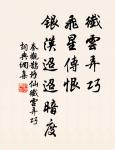 纖雲弄巧
飛星傳恨
銀漢迢迢暗度
秦觀鵲橋仙纖雲弄巧
詞典網集